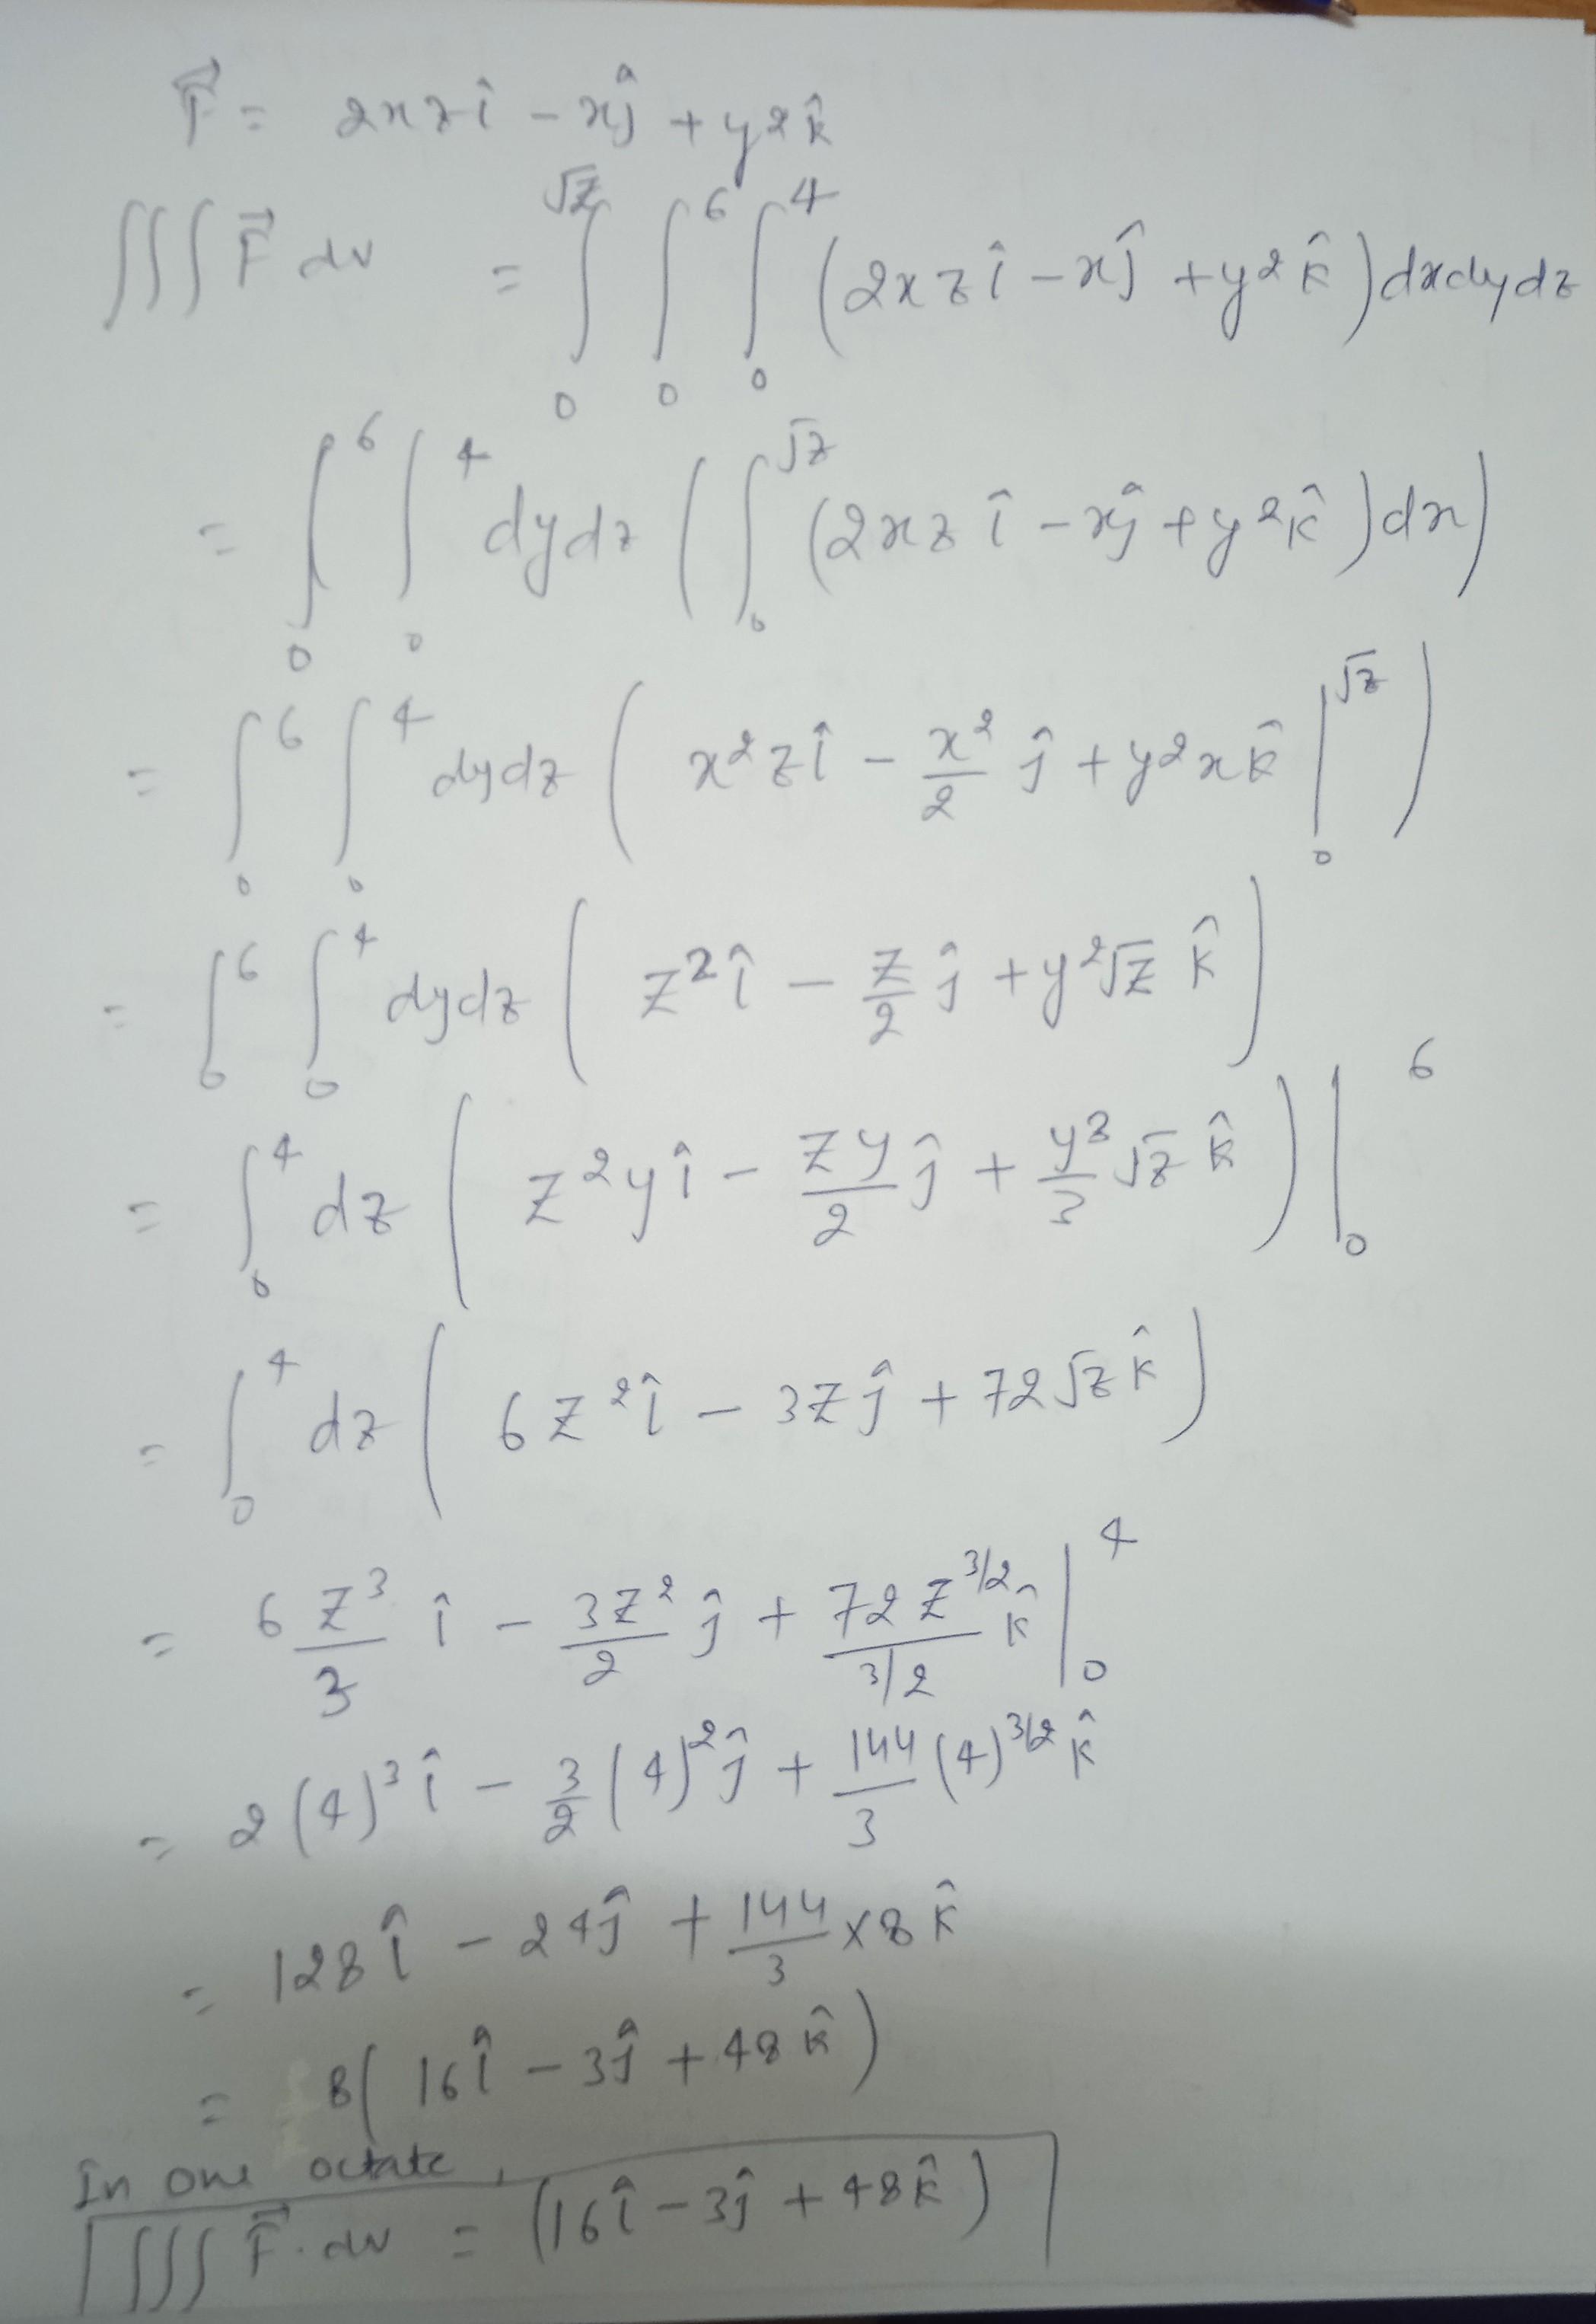 F⃗ = 2xzî - xĵ + y²k̂
∭ F⃗ dv = ∫₀^√z ∫₀^6 ∫₀^4 (2xzî - xĵ + y²k̂) dxdydz
= ∫₀^6 ∫₀^4 dydz ( ∫₀^√z (2xzî - xĵ + y²k̂) dx )
= ∫₀^6 ∫₀^4 dydz ( x²zî - x²/2 ĵ + y²xk̂ |₀^√z )
= ∫₀^6 ∫₀^4 dydz ( z²î - z/2 ĵ + y²√z k̂ )
= ∫₀^4 dz ( z²yî - zy/2 ĵ + y³/3 √z k̂ ) |₀^6
= ∫₀^4 dz ( 6z²î - 3zĵ + 72√z k̂ )
= 6 z³/3 î - 3z²/2 ĵ + 72 z^3/2 / 3/2 k̂ |₀^4
= 2(4)³î - 3/2 (4)²ĵ + 144/3 (4)^3/2 k̂
= 128î - 24ĵ + 144/3 × 8 k̂
= 8( 16î - 3ĵ + 48k̂ )
In one octate,
∭ F⃗.dv = (16î - 3ĵ + 48k̂)